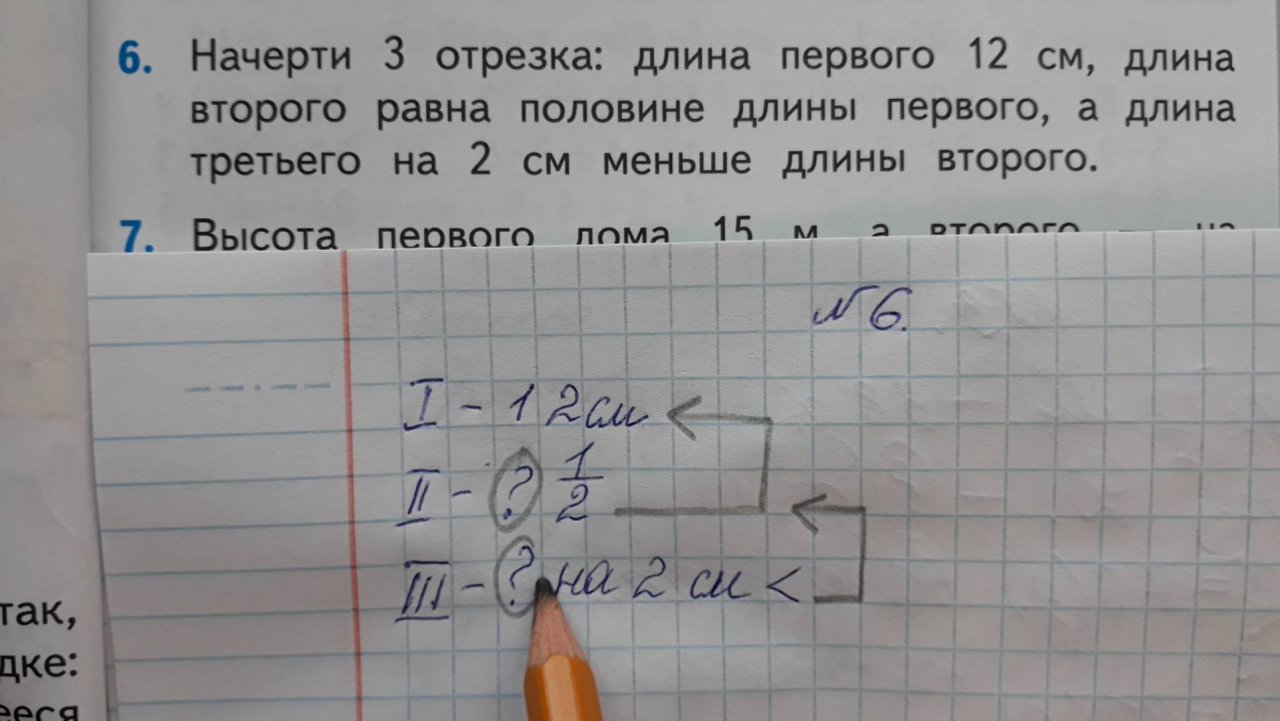 6. Начерти 3 отрезка: длина первого 12 см, длина
второго равна половине длины первого, а длина
третьего на 2 см меньше длины второго.
7. Высота первого дома 15 м, а второго — на
№ 6.
I - 12 см
II - ? 1/2
III - ? на 2 см <
так,
дке:
ееся